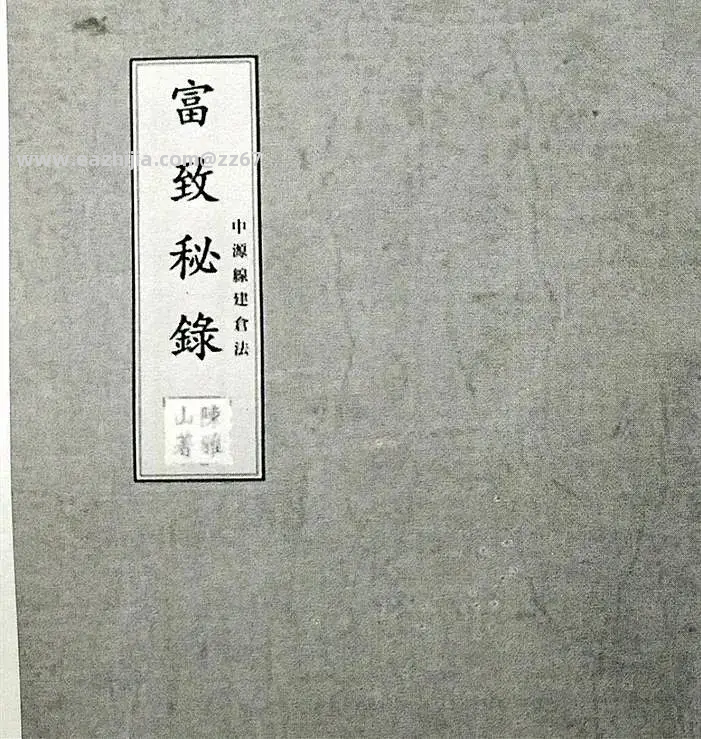 富致秘錄
中源線建倉法
陳雅
山著
www.eazhijia.com@zz67